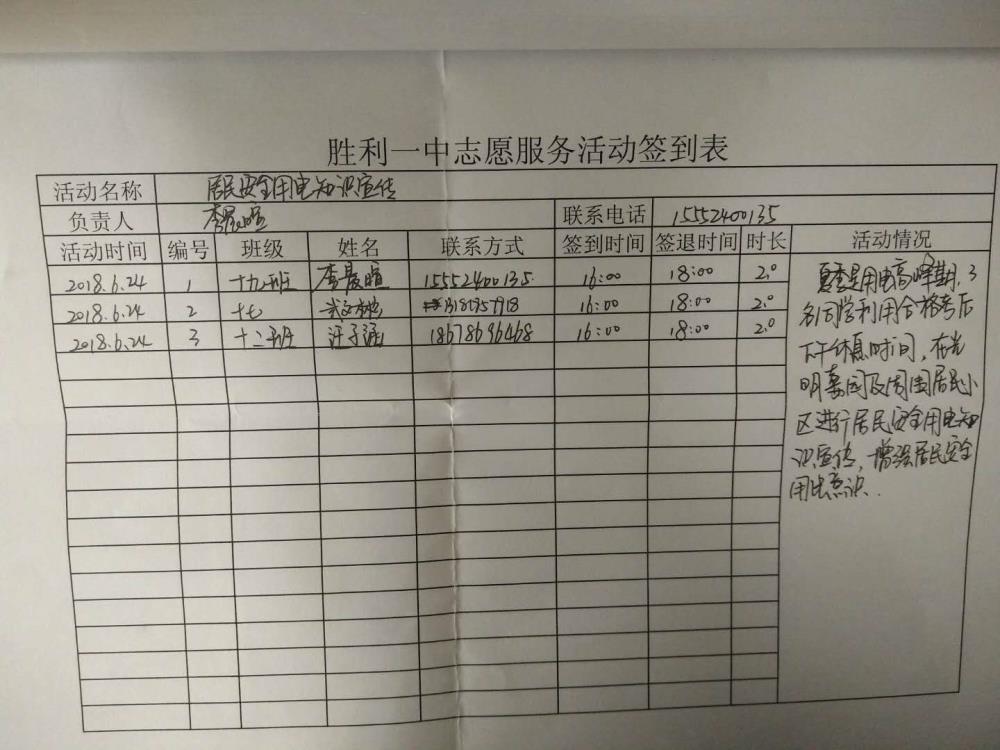 胜利一中志愿服务活动签到表
活动名称 居民安全用电知识宣传
负责人 李晨暄 联系电话 15552400135
活动时间 编号 班级 姓名 联系方式 签到时间 签退时间 时长 活动情况
2018.6.24 1 十九班 李晨暄 15552400135 16:00 18:00 2.0
2018.6.24 2 十七 16:00 18:00 2.0
2018.6.24 3 十二班 汪子涵 18678696468 16:00 18:00 2.0
夏季是用电高峰期,3
名同学利用合格考后
下午休息时间,在光
明嘉园及周围居民小
区进行居民安全用电知
识宣传,增强居民安全
用电意识.